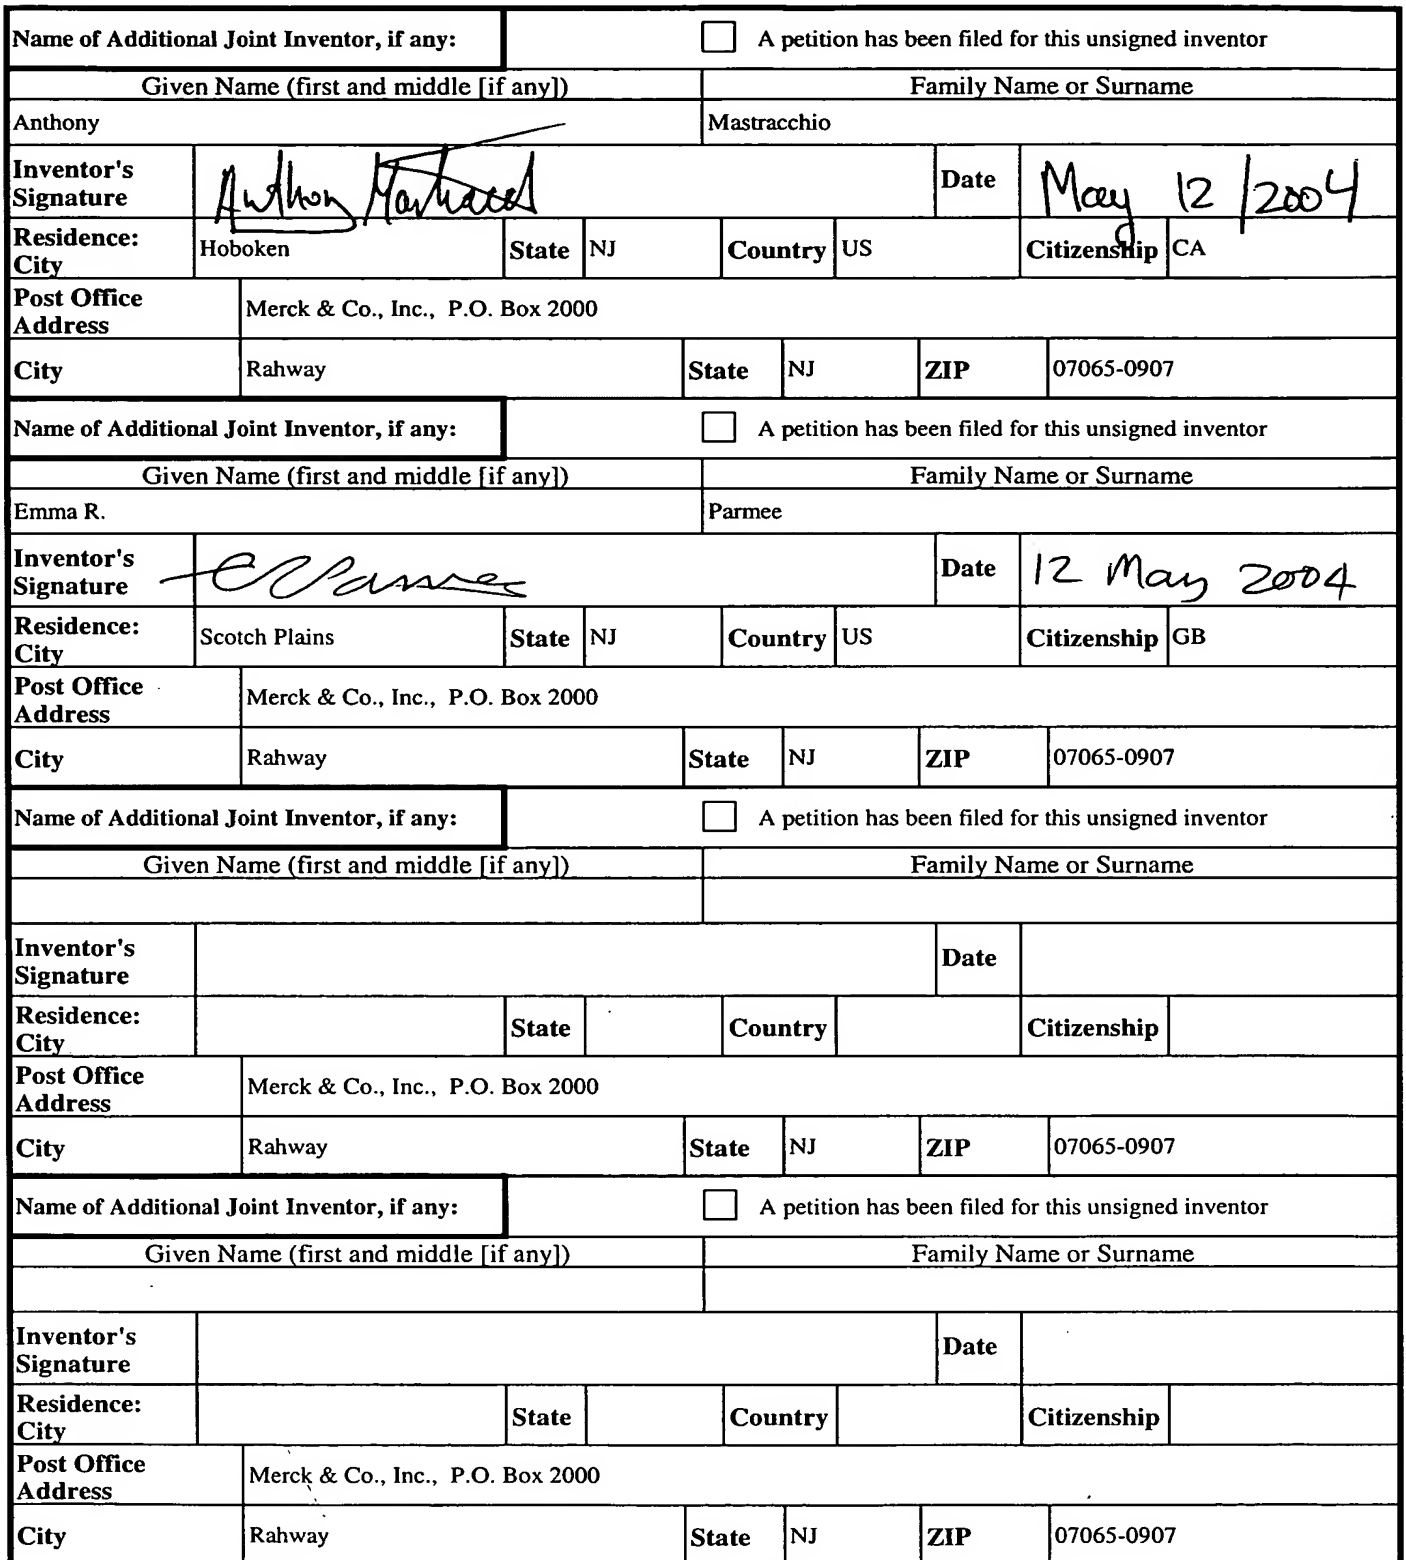 Name of Additional Joint Inventor, if any: A petition has been filed for this unsigned inventor
Given Name (first and middle [if any]) Family Name or Surname
Anthony Mastracchio
Inventor's Signature Anthony Date May 12/2004
Residence: City Hoboken State NJ Country US Citizenship CA
Post Office Address Merck & Co., Inc., P.O. Box 2000
City Rahway State NJ ZIP 07065-0907
Name of Additional Joint Inventor, if any: A petition has been filed for this unsigned inventor
Given Name (first and middle [if any]) Family Name or Surname
Emma R. Parmee
Inventor's Signature Date 12 May 2004
Residence: City Scotch Plains State NJ Country US Citizenship GB
Post Office Address Merck & Co., Inc., P.O. Box 2000
City Rahway State NJ ZIP 07065-0907
Name of Additional Joint Inventor, if any: A petition has been filed for this unsigned inventor
Given Name (first and middle [if any]) Family Name or Surname
Inventor's Signature Date
Residence: City State Country Citizenship
Post Office Address Merck & Co., Inc., P.O. Box 2000
City Rahway State NJ ZIP 07065-0907
Name of Additional Joint Inventor, if any: A petition has been filed for this unsigned inventor
Given Name (first and middle [if any]) Family Name or Surname
Inventor's Signature Date
Residence: City State Country Citizenship
Post Office Address Merck & Co., Inc., P.O. Box 2000
City Rahway State NJ ZIP 07065-0907